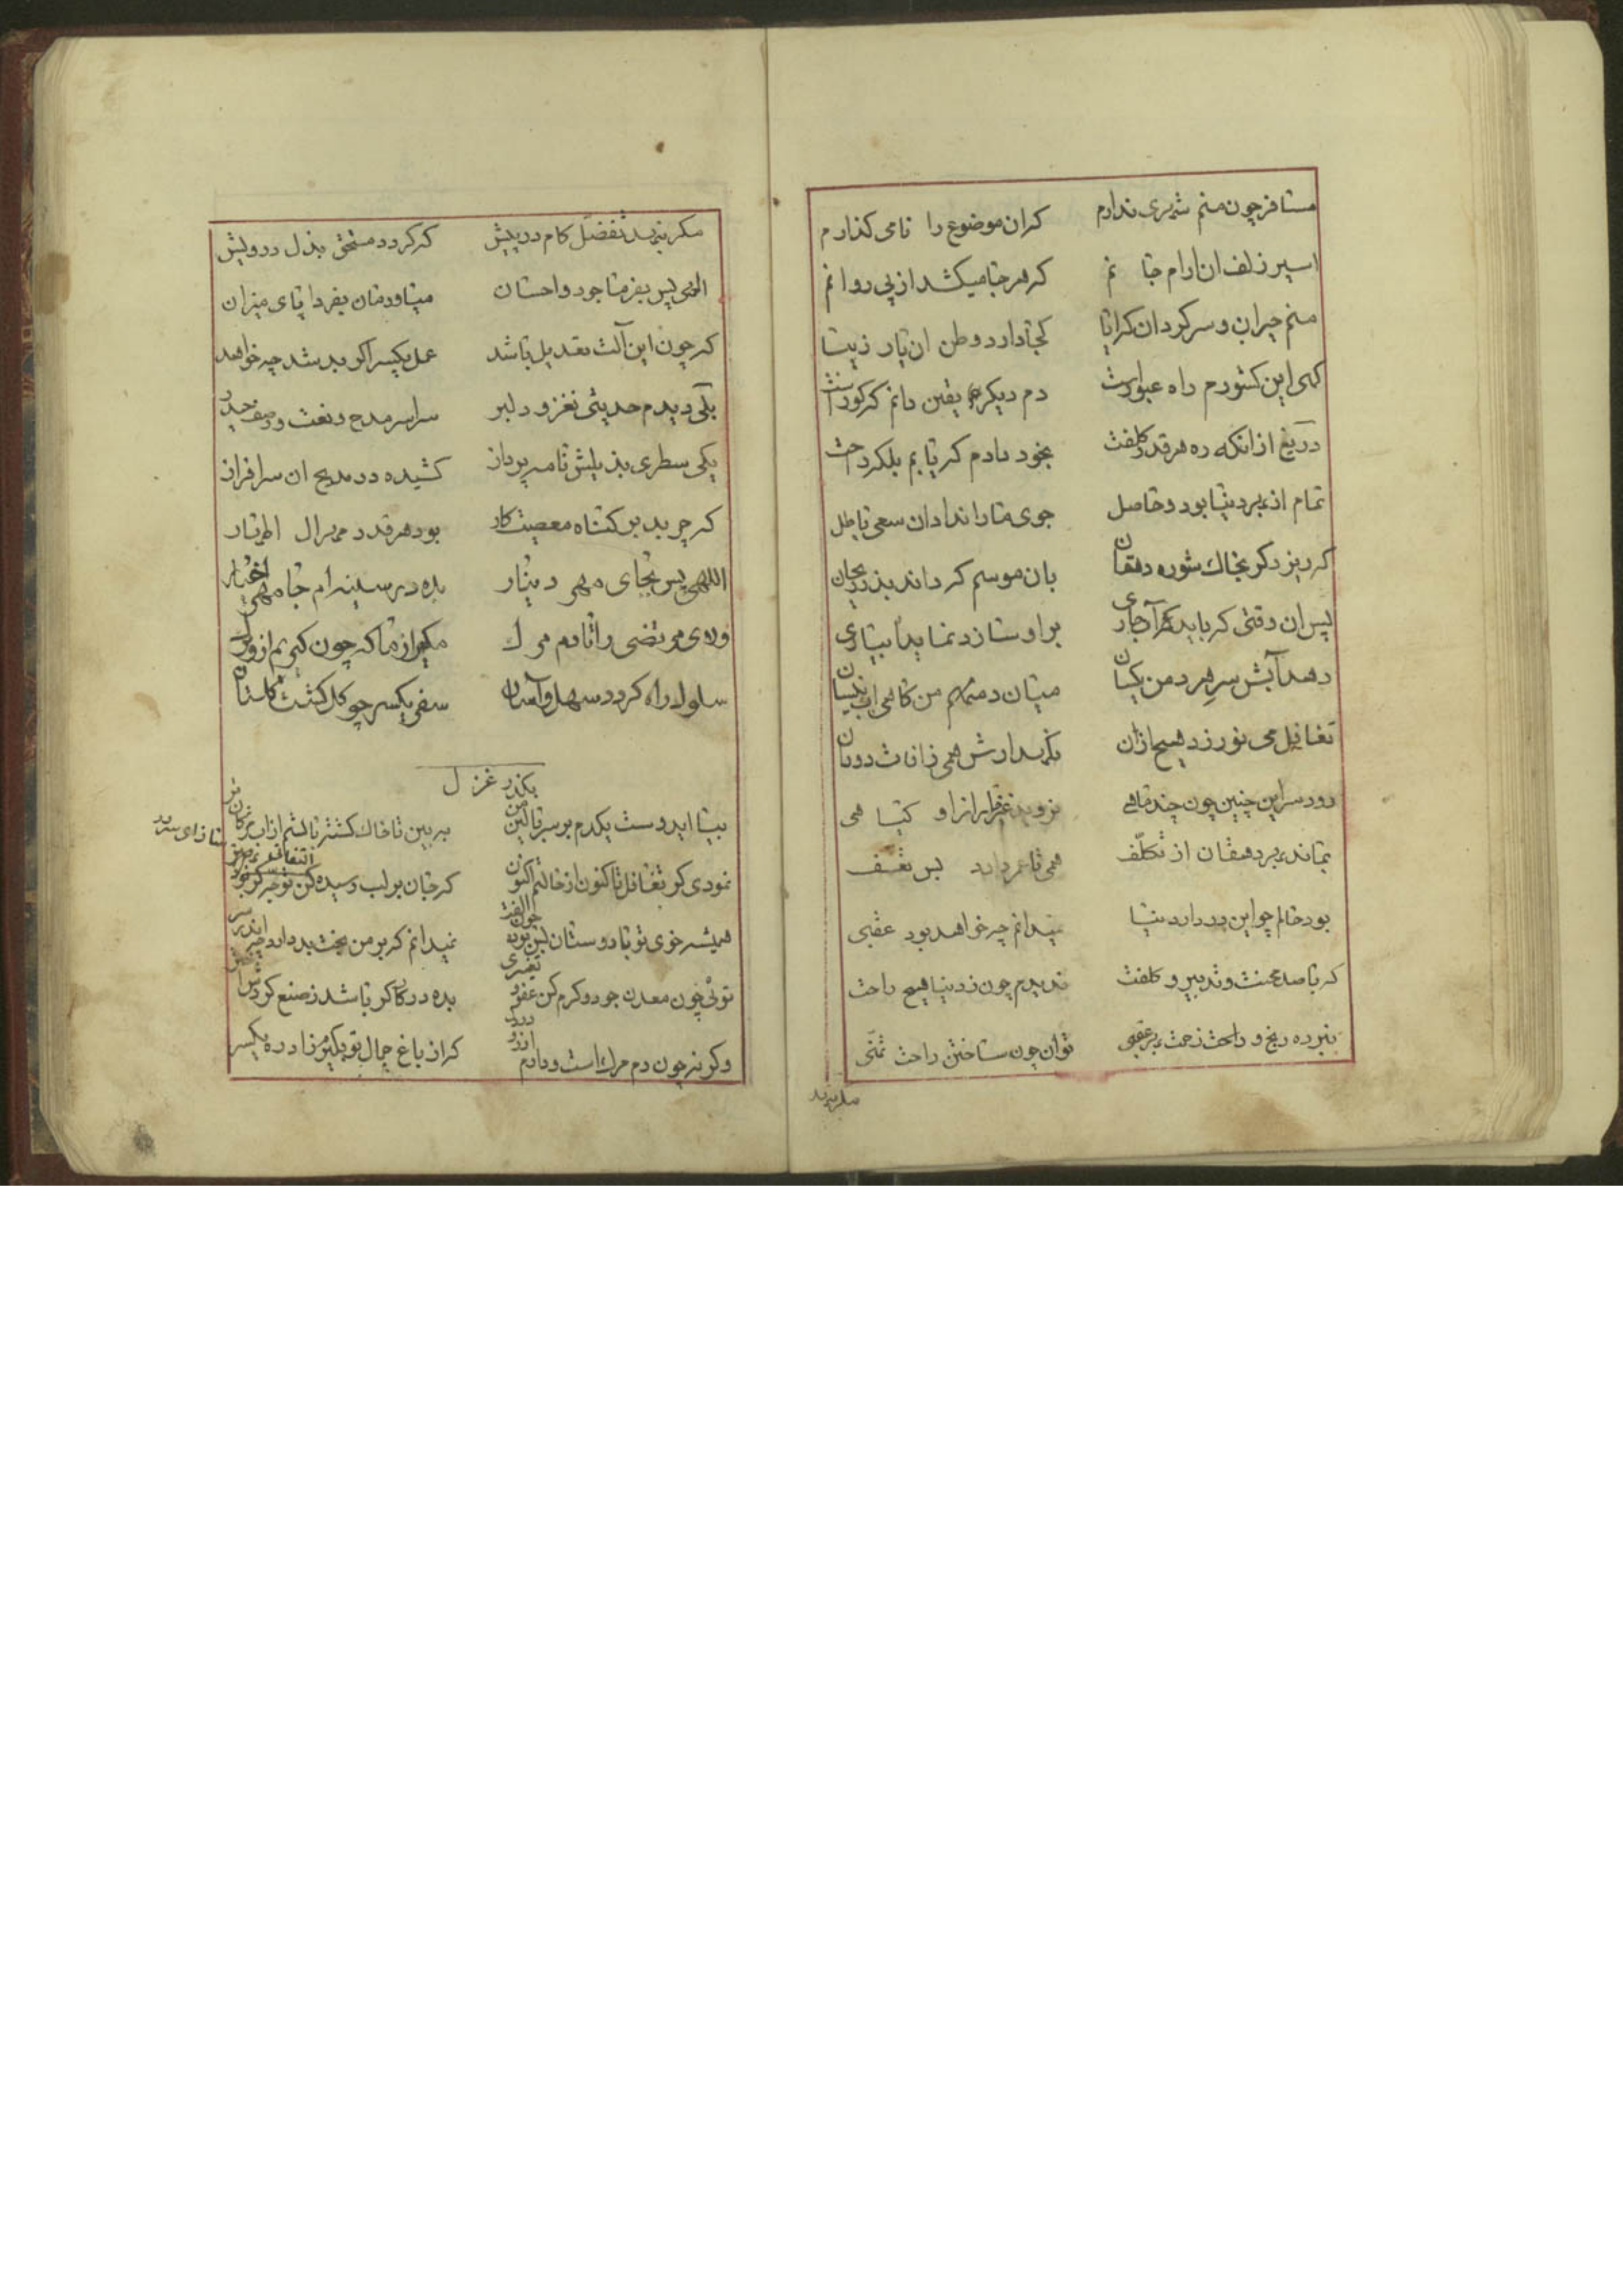 مسافر چون منم شهری ندارم کران موضوع را نامی کذارم
اسیر زلف ان ارام جانم که هر جا میکشد از پی روانم
منم حیران و سرکردان که ایا کجا دارد وطن ان یار زیبا
کهی این کشورم راه عبور است دم دیکر هم یقین دانم که کور است
دریغ از انکه ره هر قدر کلفت بخود دادم که یابم بلکه راحت
تمام از بهر دنیا بود و حاصل جوی ما را نداد ان سعی باطل
که ریزد کر بخاك شوره دهقان بان موسم که داند بذر ریحان
پس ان وقتی که باید کرد آبیاری بر او سازد نماید
دهد آبش سر هر دمن یکسان میان دمنهم من کاهی اب نیسان
تغافل می نورزد هیچ ازان نکهدارش همی ز افات دوران
رود سر این چنین چون چند ماهی نروید غیر از او کیاهی
بماند بهر دهقان از تکلّف همی تا عمر دارد بس تعسّف
بود حالم چو این در دار دنیا نمیدانم چه خواهد بود عقبی
که با صد محنت و تدبیر و کلفت ندیدم چون ز دنیا هیچ راحت
نبرده رنج و راحت زحمت بهر عقبی توان چون ساختن راحت تمنّی
مکر نهد تفضّل کام در پیش که کردد مستحق بذل درویش
الهی پس بفرما جود و احسان میاور مان بفردا پای میزان
که چون این آلت تعدیل باشد عمل یکسر اکر بد شد چه خواهد
یکی دیدم حدیثی نغز و دلبر سراسر مدح و نعت و وصف حیدر
یکی سطری بذیلش نامه پرداز کشیده در مدیح ان سرافراز
که چربد بر کناه معصیت کار بود هر قدر مهر ال اطهار
اللهی پس بجای مهر دینار بده در سینه ام جا مهر اخیار
ولای مرتضی را تا دم مرك مکیر از ما که چون کیریم ازو برك
سلوك راه کردد سهل و آسان سفر یکسر چو کل کشت کلستان
بکذر غزل
بیا ایدوست یکدم بر سر بالین من به بین تا خاك کشته بالشم از اب مژکان تر
نمودی کر تغافل تا کنون از حالتم اکنون که جان بر لب رسیده کن توجه
همیشه خوی تو با دوستان چون الفت بوده نمیدانم که بر من بخت بد دارد چه اندر سر
توئی چون معدن جود و کرم کن عفو تقصیری
وکرنه چون دم مرك است و دادم کر از باغ جمال تو یکیرم زاد ره یکسر